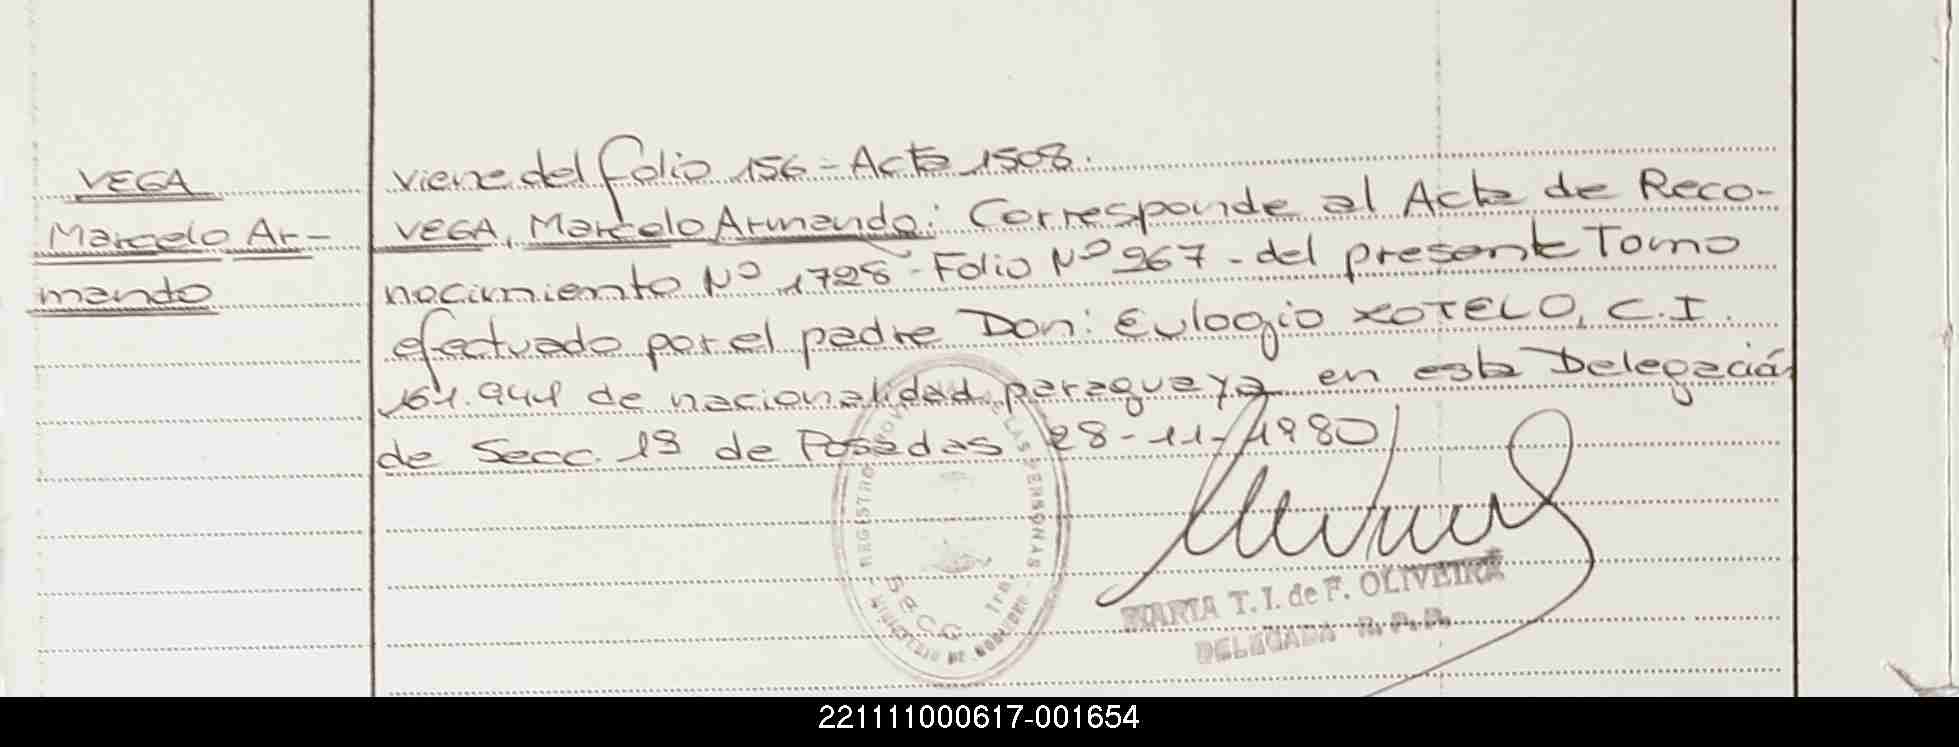 VEGA
Marcelo Ar-
mando
viene del folio 156 = Acta 1508.
VEGA, Marcelo Armando: Corresponde al Acta de Reco-
nocimiento Nº 1728 - Folio Nº 967 - del presente Tomo
efectuado por el padre Don: Eulogio XOTELO, C.I.
161.941 de nacionalidad paraguaya en esta Delegación
de Secc. 1ª de Posadas 28-11-1980
REGISTRO PROV DE LAS PERSONAS
Secc 1ra
MINISTERIO DE GOBIERNO
MARIA T. I. de F. OLIVEIRA
DELEGADA R. P. P.
221111000617-001654